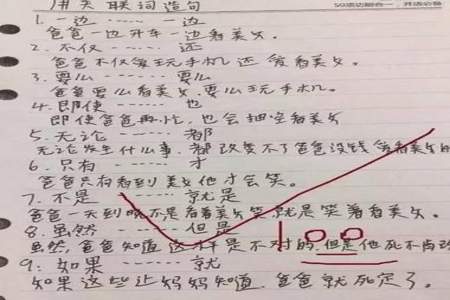 用关联词造句
50语访综合一,开店必备
1.一边 ······ 一边
爸爸一边开车一边看美女。
2.不仅 ······ 还
爸爸不仅爱玩手机还爱看美女。
3.要么 ······ 要么
爸爸要么看美女,要么玩手机。
4.即使 ······ 也
即使爸爸再忙,也会抽空看美女
5.无论 ······ 都
无论发生什么事,都改变不了爸爸没钱爱看美女的
6.只有 ······ 才
爸爸只有看到美女他才会笑。
7.不是 ······ 就是
爸爸一天到晚不是看着美女笑就是笑着看美女。
8.虽然 ······ 但是
虽然,爸爸知道这样是不对的,但是他死不肯改
9:如果 ······ 就
如果这些让妈妈知道,爸爸就死定了。
100